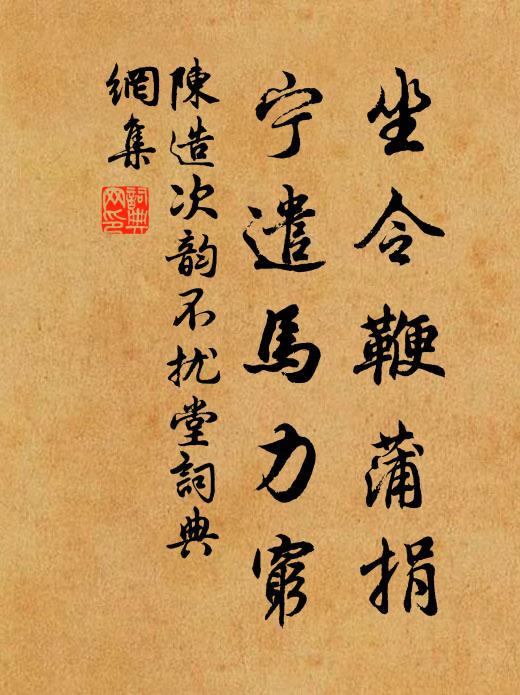 坐令鞭蒲捐
宁遣馬力窮
陳造次韵不扰堂詞典
網集
詞典網印